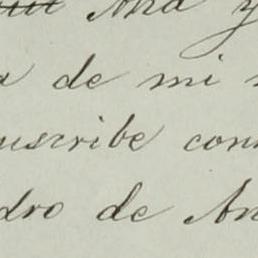 Ana y
a de mi
uscribe con
dro de An